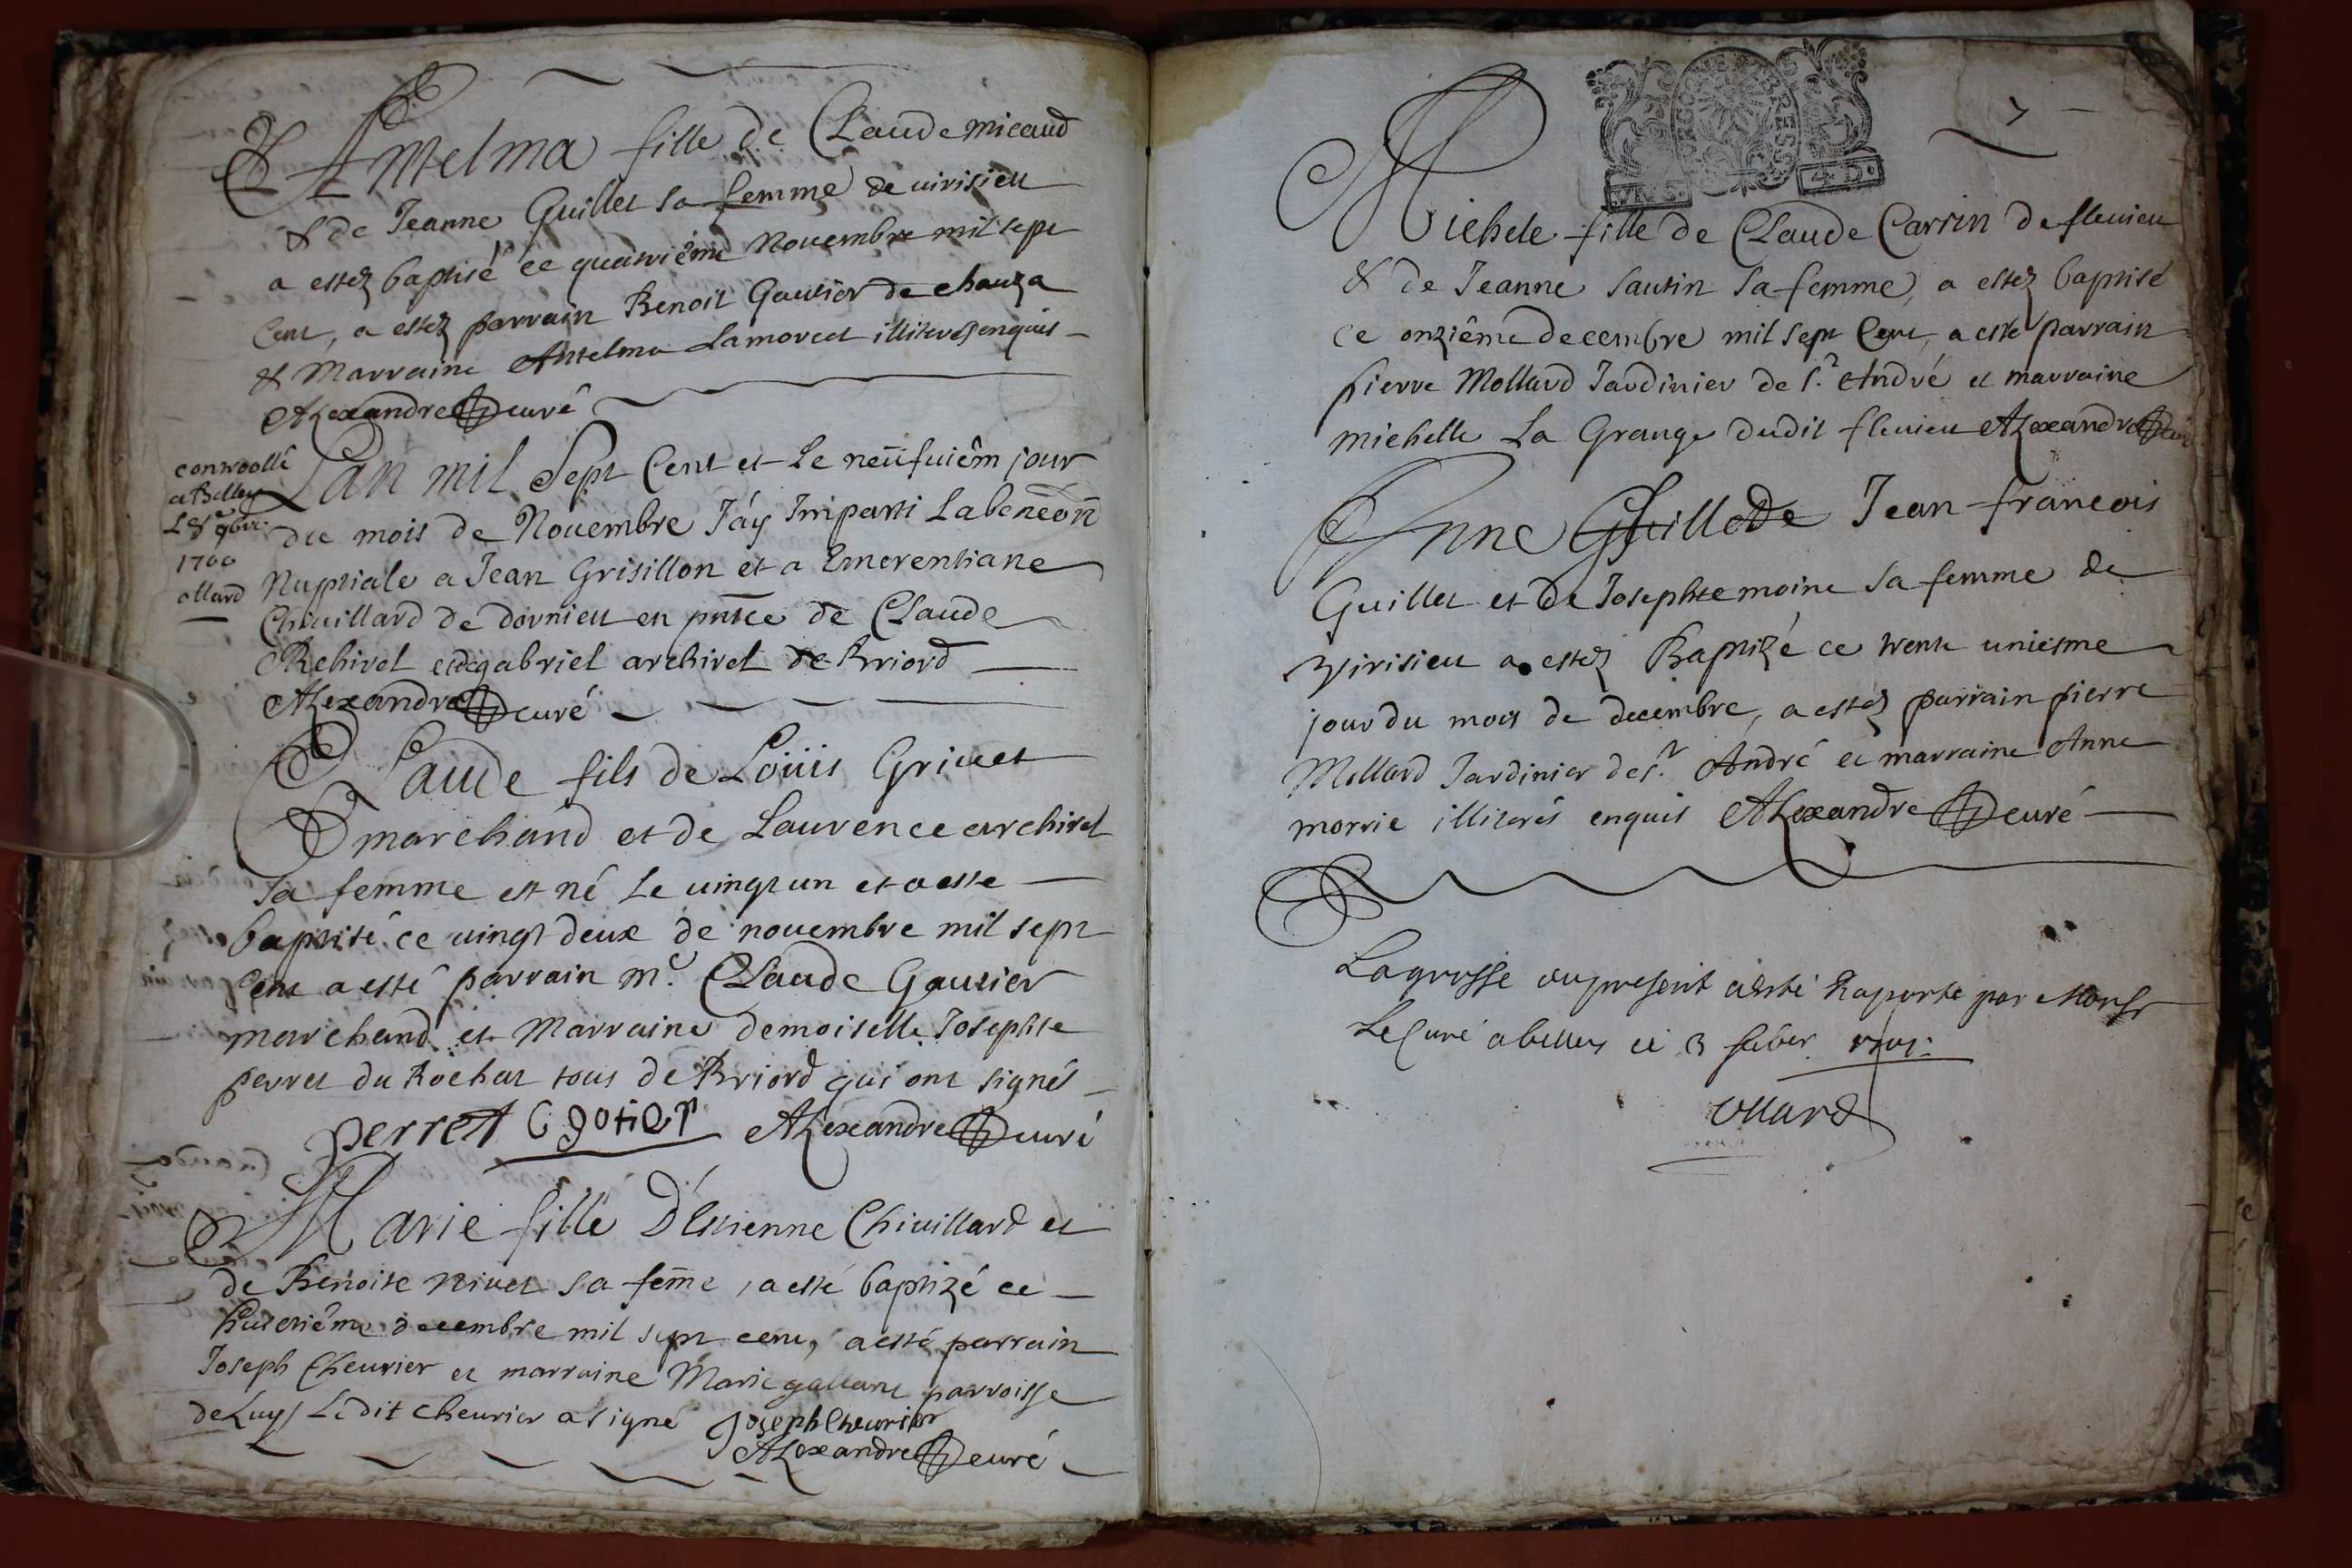 Antelma fille de Claude micaud
& de Jeanne Guillet sa femme de virisieu
a estez baptisé ce quatriéme Novembre mil sept
Cent, a estez parrain Benoit Gautier de chauza
& Marraine Antelma Lamorect illiteres enquis
Alexandre curé
conteroollé
a Belley
Le 9bre
1700
ollard
Lan mil Sept Cent et Le neufuiêm jour
du mois de Nouembre J'áy Imparti La beneon
Nuptiale a Jean Grisillon et a Emerentiane
Chiuillard de dornieu en pnce de Claude
Rchiret et de gabriel archiret de Briord
Alexandre curé
Claude fils de Loüis Griuet
marchand et de Laurence archiret
sa femme est né Le uingt un et a este
baptisé ce uingt deux de nouembre mil sept
Cent a esté parrain Me. Claude Gautier
marchand et Marraine demoiselle Josephte
perret du Rochat tous de Briord qui ont signés
perret C gotier Alexandre curé
Marie fille D'Estienne Chiuillard et
de Benoite niuet sa feme, a esté baptizé ce
huictiême decembre mil sept cent, a esté parrain
Joseph Cheurier et marraine Marie gallant parroisse
de Luys Ledit cheurier a signé Joseph Cheurier
Alexandre curé
7
4.D.
Michele fille de Claude Carrin de fleuieu
& de Jeanne Sautin sa femme, a estez baptisé
ce onziême decembre mil sept Cent, a esté parrain
pierre Mollard Jardinier de St. André et marraine
michelle La Grange dudit fleuieu Alexandre curé
Anne Guille de Jean francois
Guillet et de Josephte moine sa femme de
virisieu a estez Baptizé ce trente uniesme
jour du mois de decembre, a estez parrain pierre
Mollard Jardinier de St. André et marraine Anne
morrie illiterés enquis Alexandre curé
La grosse du present a esté Raporté par Monsr
Le Curé a belley ce 3 feber 1701
ollard